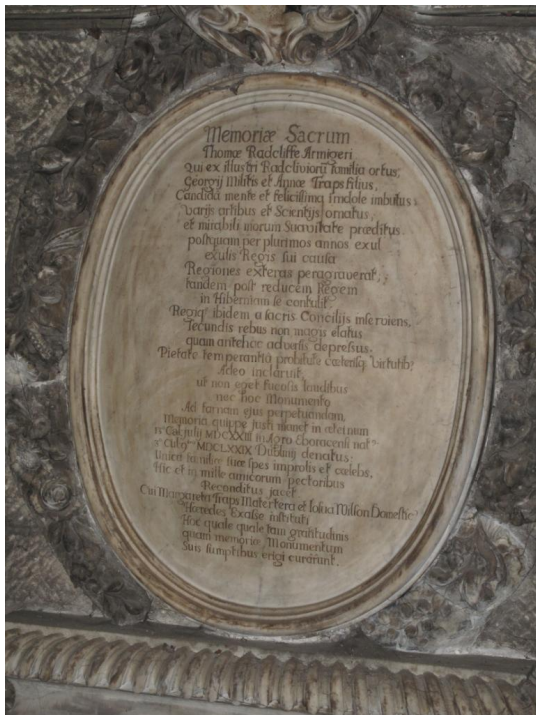 Memoriæ Sacrum
Thomæ Radcliffe Armigeri
Qui ex illustri Radcliviorũ familia ortus,
Georgij Militis et Annæ Traps filius,
Candida mente et felicissima indole imbutus
varijs artibus et Scientijs ornatus,
et mirabili morum Suavitate præditus.
postquam per plurimos annos exul
exulis Regis sui causa
Regiones exteras peragraverat,
tandem post reducem Regem
in Hiberniam se contulit
Regiq' ibidem a sacris Consilijs inserviens,
Secundis rebus non magis elatus
quam antehac adversis depressus.
Pietate temperantia probitate cæterisq' virtutib'
Adeo inclaruit,
ut non eget fucosis laudibus
nec hoc Monumento
Ad famam ejus perpetuandam,
Memoria quippe justi manet in æternum
Cal julij MDCXXIII in Agro Eboracenſi nat'
MDCLXXIX Dublinij denatus.
Unica familiæ suæ spes improlis et cælebs,
Hic et in mille amicorum pectoribus
Reconditus jacet
Cui Margareta Traps Matertera et Iosua Wilson Domestic'
Hæredes Exasse instituti
Hoc quale quale tam gratitudinis
quam memoriæ Monumentum
Suis sumptibus erigi curarunt.